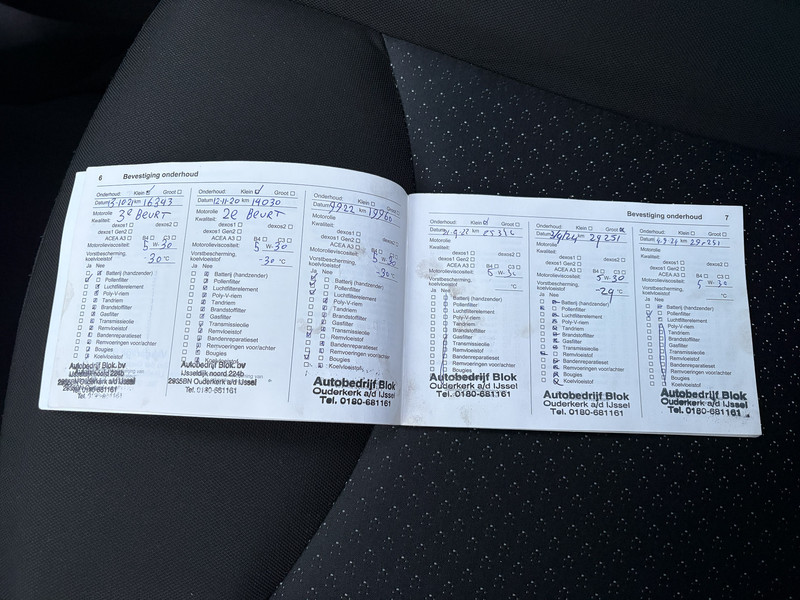 6 Bevestiging onderhoud
Onderhoud: Klein Groot
Datum 13-10-21 km 16343
Motorolie 3e BEURT
Kwaliteit:
dexos1 dexos2
dexos1 Gen2
ACEA A3 B4 C3
Motorolieviscositeit: 5 W-30
Vorstbescherming,
koelvloeistof -30 °C
Ja Nee
Batterij (handzender)
Pollenfilter
Luchtfilterelement
Poly-V-riem
Tandriem
Brandstoffilter
Gasfilter
Transmissieolie
Remvloeistof
Bandenreparatieset
Remvoeringen voor/achter
Bougies
Koelvloeistof
Autobedrijf Blok.bv
IJsseldijk noord 224b
2935BN Ouderkerk a/d IJssel
Tel. 0180-681161
Onderhoud: Klein Groot
Datum 12-11-20 km 14030
Motorolie 2e BEURT
Kwaliteit:
dexos1 dexos2
dexos1 Gen2
ACEA A3 B4 C3
Motorolieviscositeit: 5 W-30
Vorstbescherming,
koelvloeistof -30 °C
Ja Nee
Batterij (handzender)
Pollenfilter
Luchtfilterelement
Poly-V-riem
Tandriem
Brandstoffilter
Gasfilter
Transmissieolie
Remvloeistof
Bandenreparatieset
Remvoeringen voor/achter
Bougies
Autobedrijf Blok.bv
IJsseldijk noord 224b
2935BN Ouderkerk a/d IJssel
Tel. 0180-681161
Onderhoud: Klein Groot
Datum km
Motorolie
Kwaliteit:
dexos1 dexos2
dexos1 Gen2
ACEA A3 B4 C3
Motorolieviscositeit: 5 W-30
Vorstbescherming,
koelvloeistof -30 °C
Ja Nee
Batterij (handzender)
Pollenfilter
Luchtfilterelement
Poly-V-riem
Tandriem
Brandstoffilter
Gasfilter
Transmissieolie
Remvloeistof
Bandenreparatieset
Remvoeringen voor/achter
Bougies
Koelvloeistof
Autobedrijf Blok
Ouderkerk a/d IJssel
Tel. 0180-681161
Bevestiging onderhoud 7
Onderhoud: Klein Groot
Datum km
Motorolie
Kwaliteit:
dexos1 dexos2
dexos1 Gen2
ACEA A3 B4 C3
Motorolieviscositeit: 5 W-30
Vorstbescherming,
koelvloeistof °C
Ja Nee
Batterij (handzender)
Pollenfilter
Luchtfilterelement
Poly-V-riem
Tandriem
Brandstoffilter
Gasfilter
Transmissieolie
Remvloeistof
Bandenreparatieset
Remvoeringen voor/achter
Bougies
Koelvloeistof
Autobedrijf Blok
Ouderkerk a/d IJssel
Tel. 0180-681161
Onderhoud: Klein Groot
Datum km 29251
Motorolie
Kwaliteit:
dexos1 dexos2
dexos1 Gen2
ACEA A3 B4 C3
Motorolieviscositeit: 5 W-30
Vorstbescherming,
koelvloeistof -29 °C
Ja Nee
Batterij (handzender)
Pollenfilter
Luchtfilterelement
Poly-V-riem
Tandriem
Brandstoffilter
Gasfilter
Transmissieolie
Remvloeistof
Bandenreparatieset
Remvoeringen voor/achter
Bougies
Koelvloeistof
Autobedrijf Blok
Ouderkerk a/d IJssel
Tel. 0180-681161
Onderhoud: Klein Groot
Datum km
Motorolie
Kwaliteit:
dexos1 dexos2
dexos1 Gen2
ACEA A3 B4 C3
Motorolieviscositeit: 5 W-30
Vorstbescherming,
koelvloeistof °C
Ja Nee
Batterij (handzender)
Pollenfilter
Luchtfilterelement
Poly-V-riem
Tandriem
Brandstoffilter
Gasfilter
Transmissieolie
Remvloeistof
Bandenreparatieset
Remvoeringen voor/achter
Bougies
Koelvloeistof
Autobedrijf Blok
Ouderkerk a/d IJssel
Tel. 0180-681161